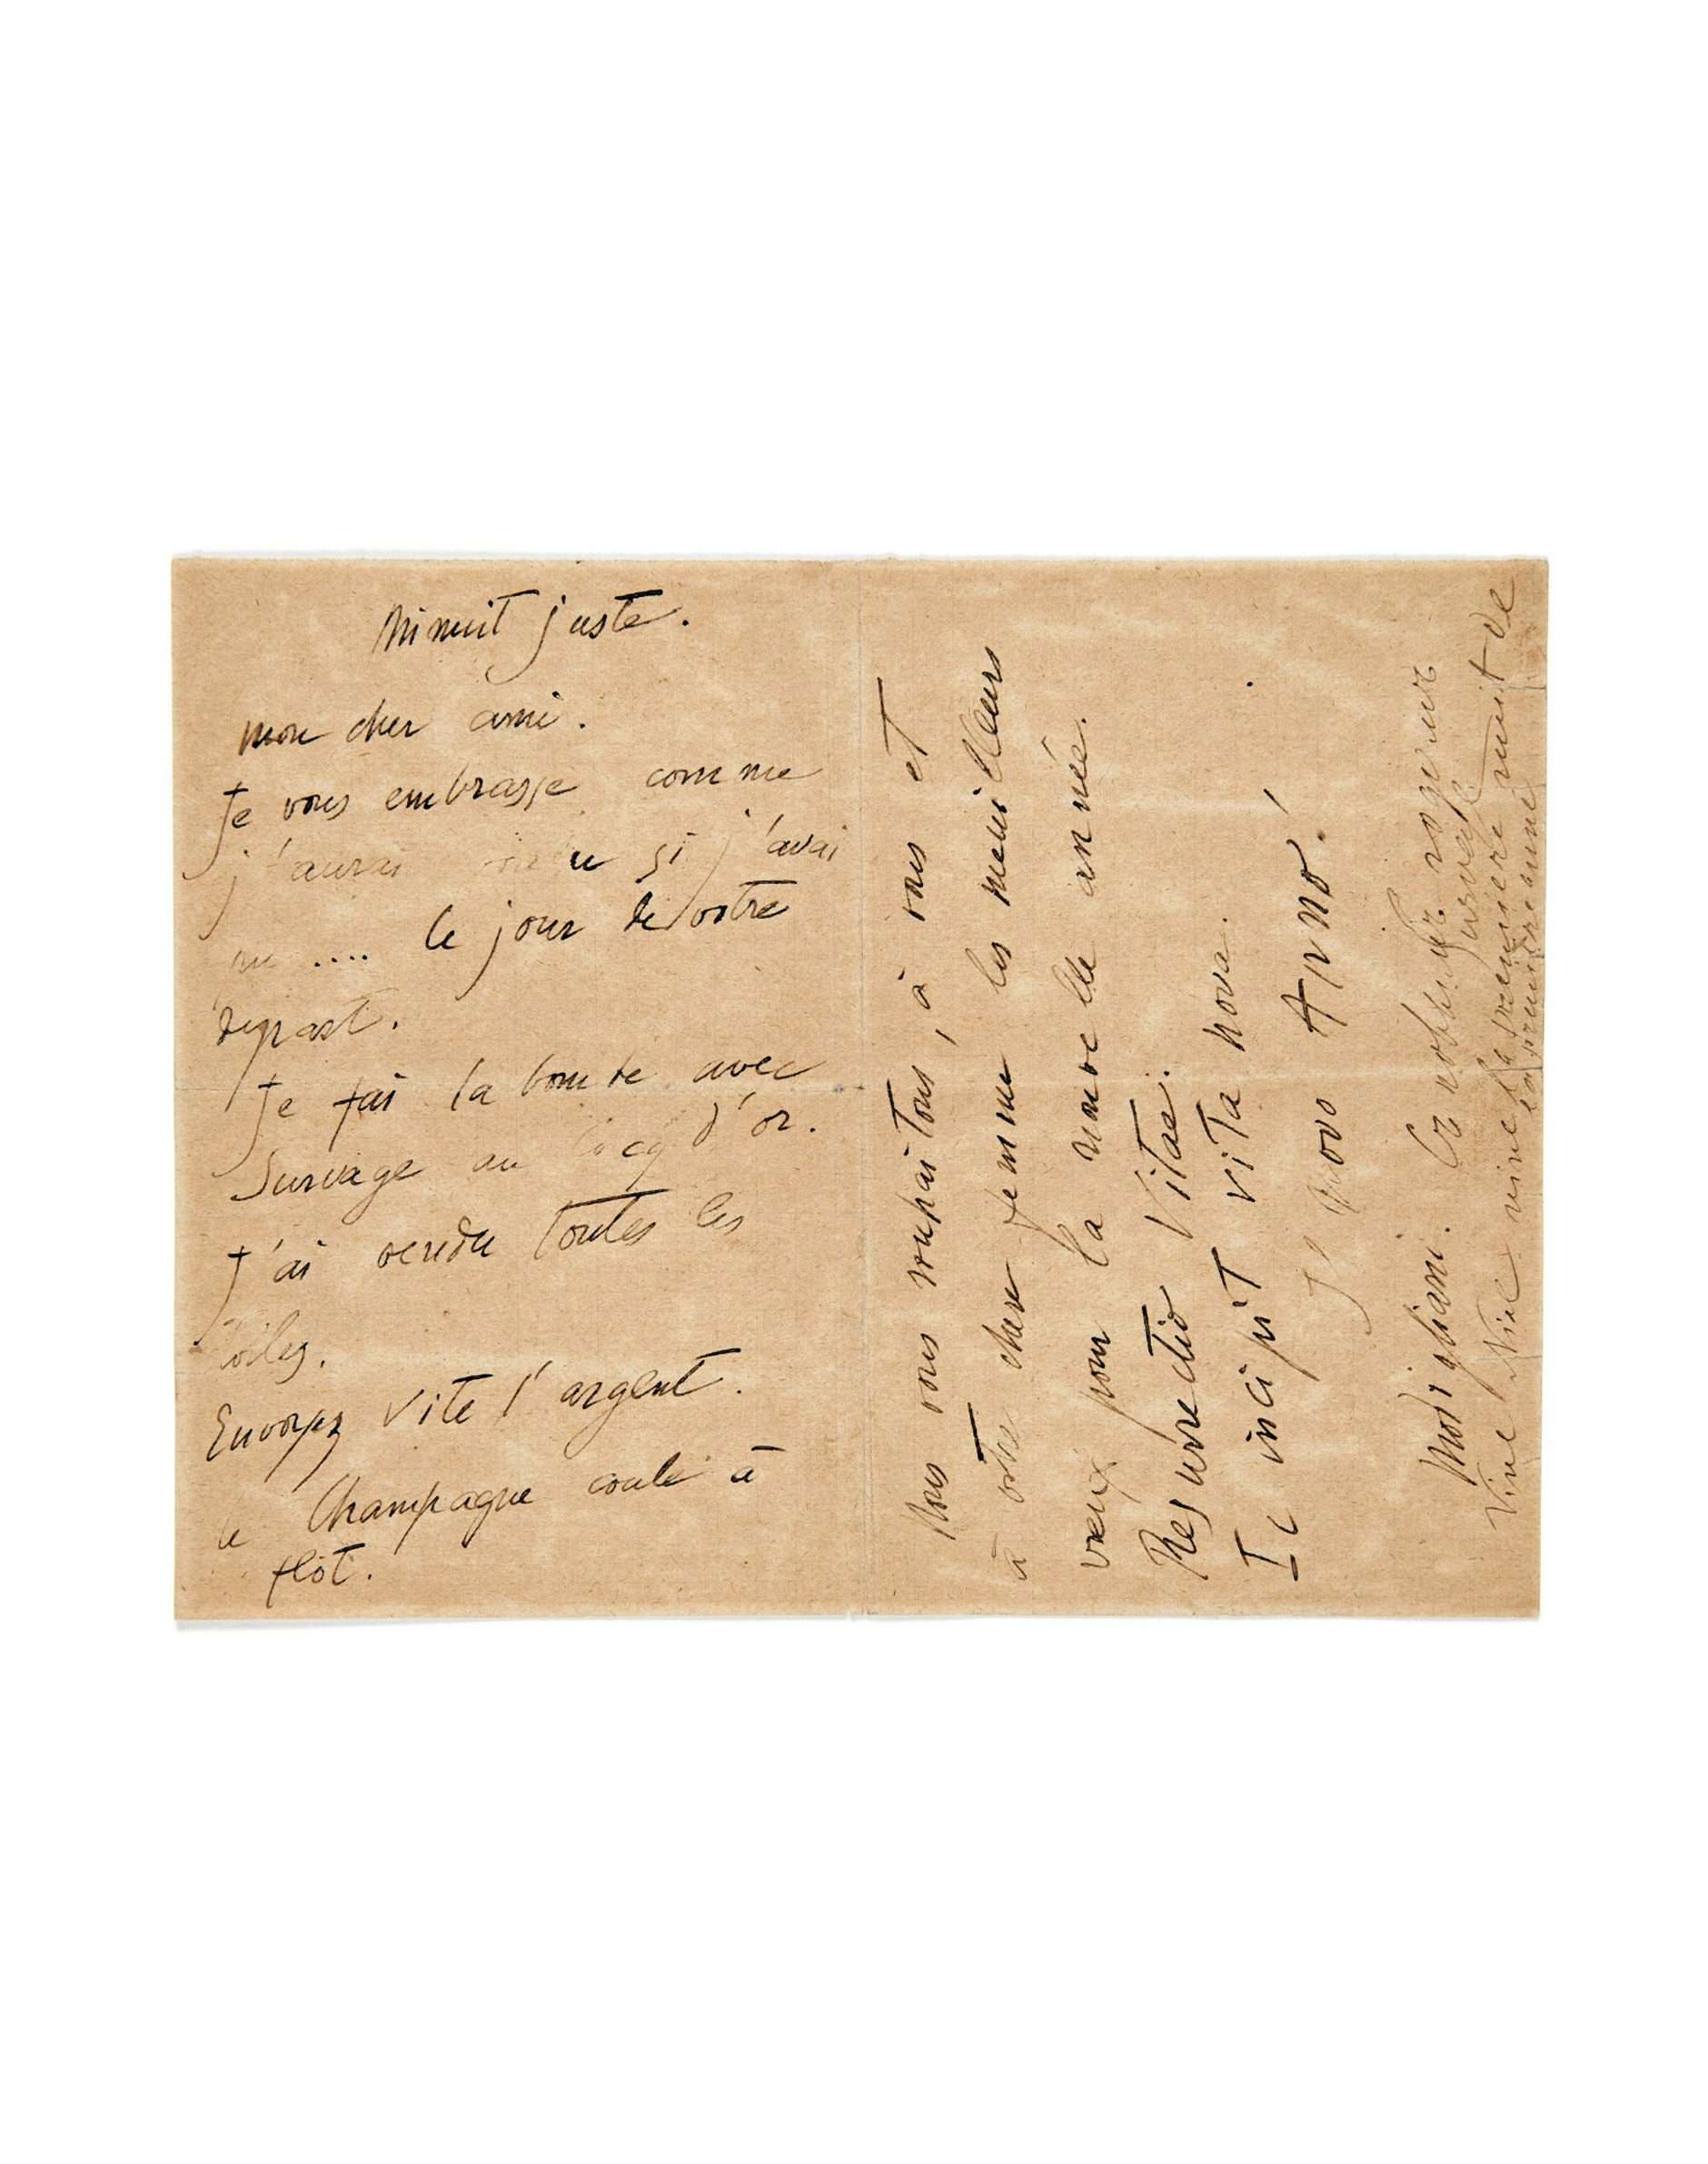 Minuit juste.
mon cher ami.
Je vous embrasse comme
j'aurai si j'avai
pu .... le jour de votre
depart.
Je fais la bombe avec
Survage au Cocq d'or.
J'ai vendu toutes les
toiles.
Envoyez vite l'argent.
le Champagne coule à
flôt.
Nous vous souhaitons, à vous et
à votre chere femme les meilleurs
vœux pour la nouvelle année.
Resurrectio Vitae.
Ic incipit vita nova.
Il novo Anno!
Modigliani.
Survage
Vive Nice vive la premiere nuit de
la premiere année